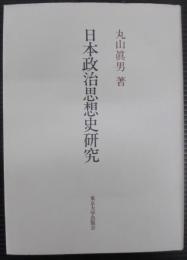 丸山眞男 著
日本政治思想史研究
東京大学出版会